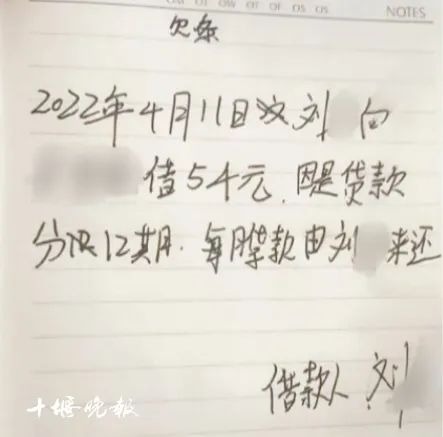 NOTES
欠条
2022年4月11日 刘 向
借5千元,因是贷款
分 12期,每月 款由刘 来还
借款人:刘
十堰晚报